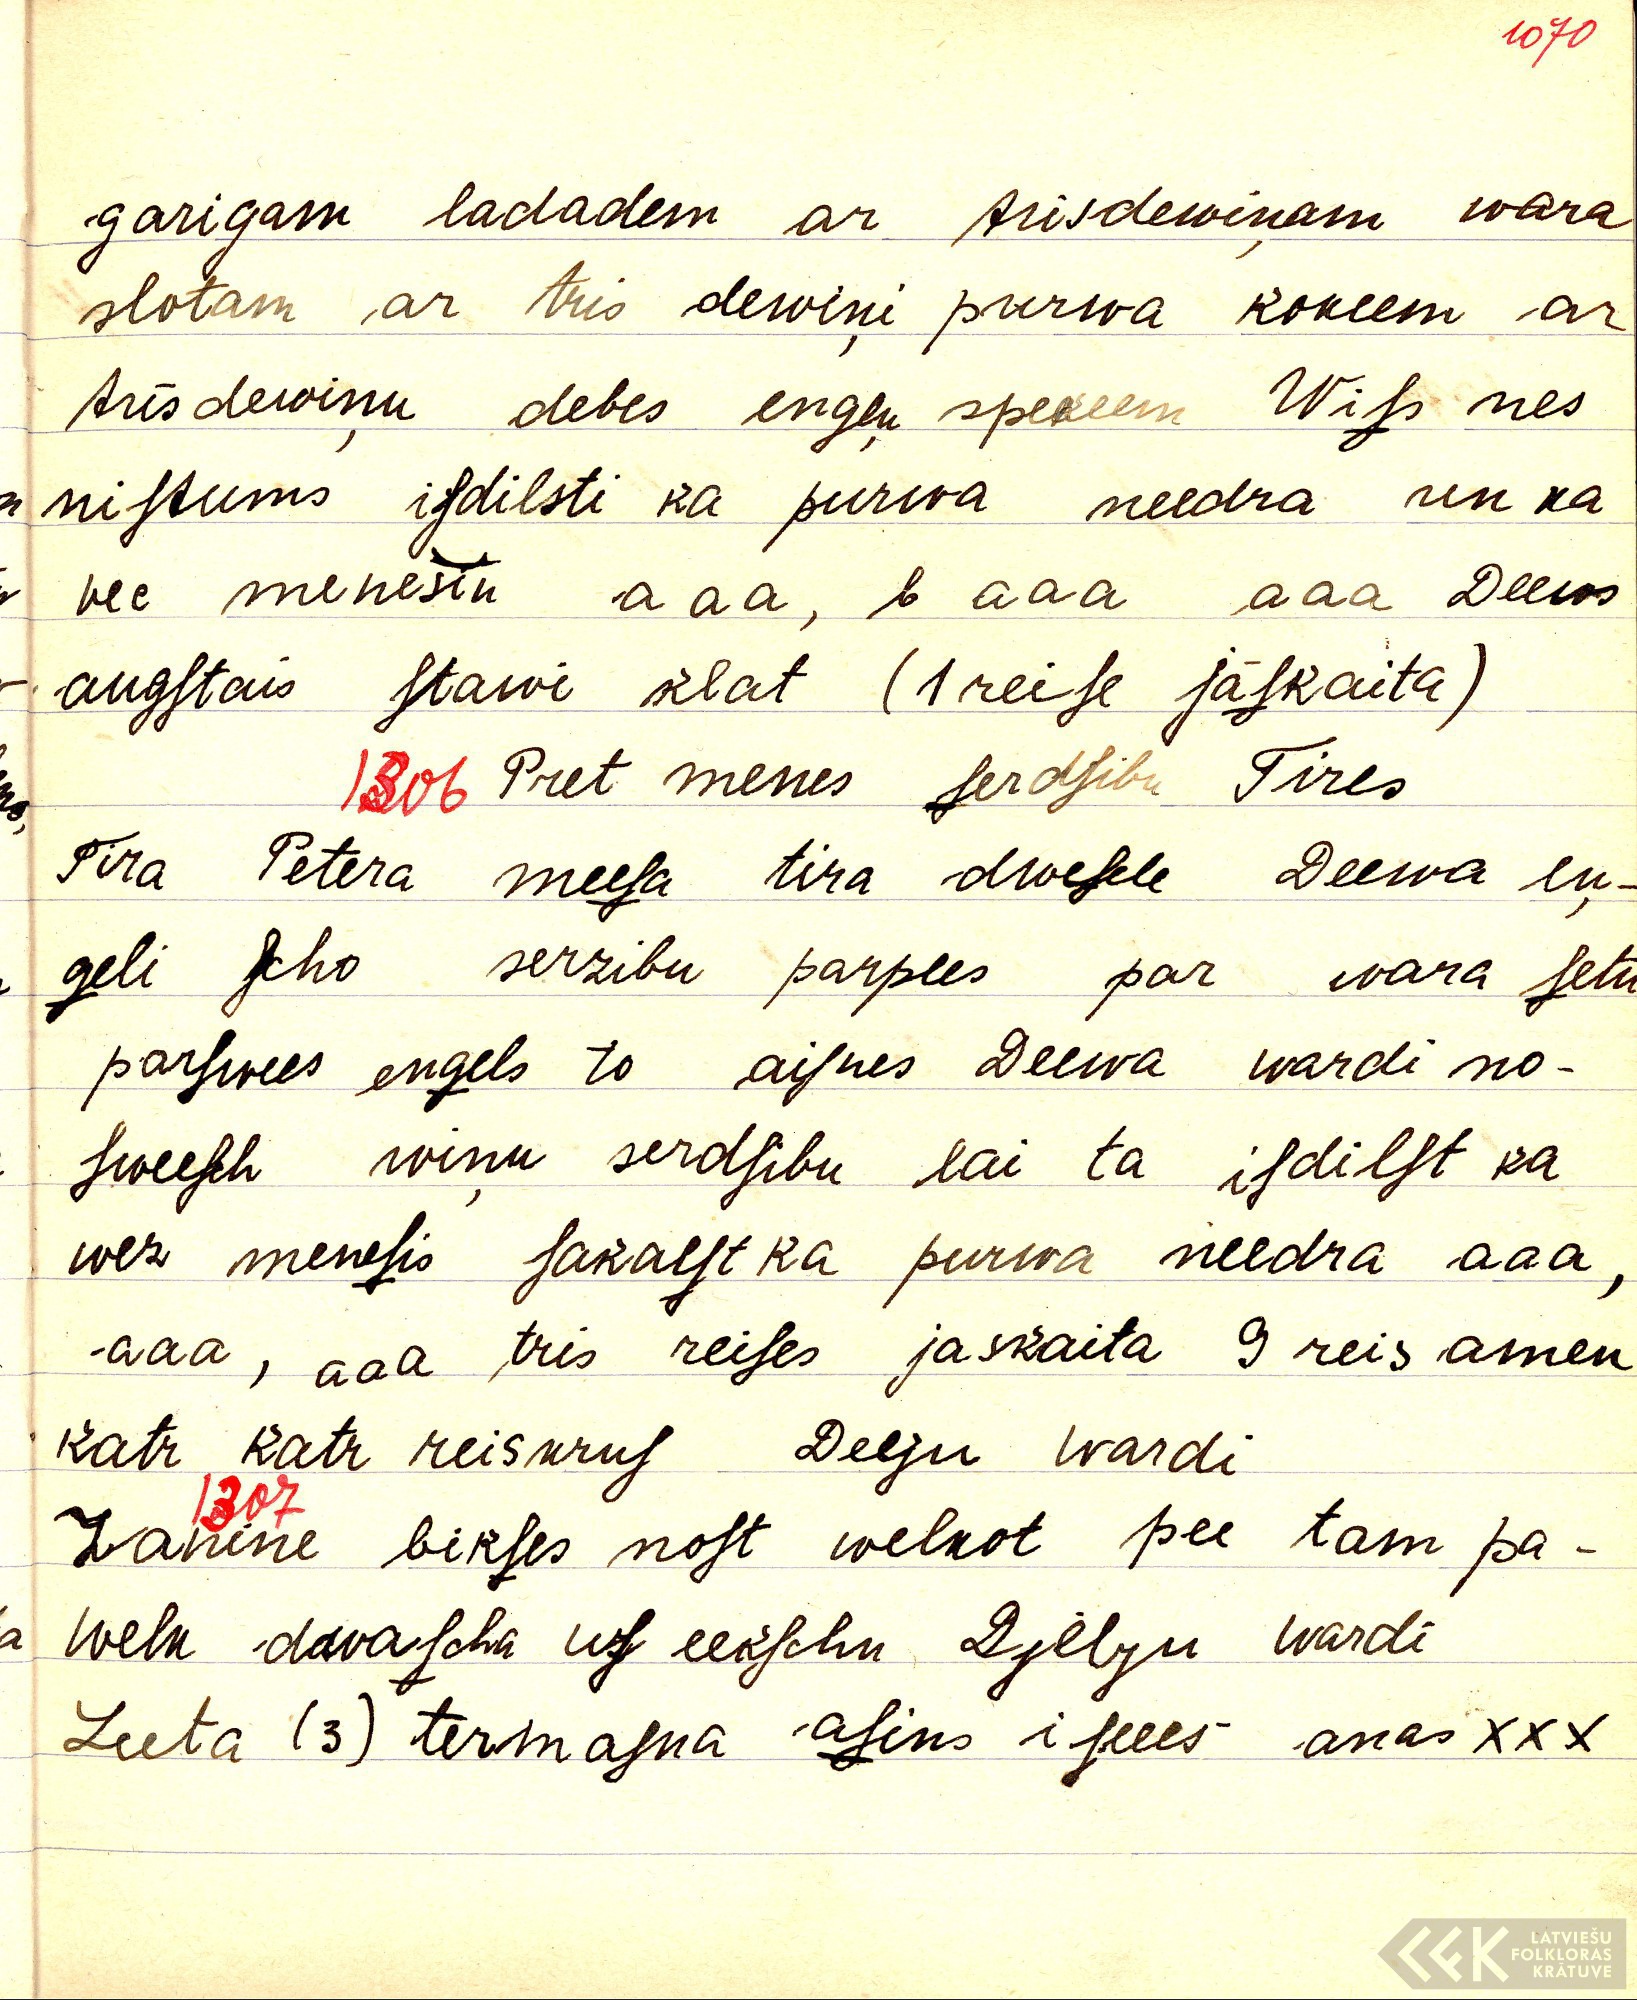 1070
garigam ladadem ar trisdewiņam wara
slotam ar tris dewiņi purwa kokeem ar
trīsdewiņu debes engeļu spekeem Wiſs nes
niſtums iſdilsti ka purwa needra un ka
vec menešiu a a a, b a a a a a a Deews
augſtais ſtawi klat (1 reiſe jāſkaita)
1306 Pret menes ſerdſibu Tires
Tira Petera meesa tira dweſele Deewa eņ-
geli ſcho serzibu parplees par wara ſetu
parſwees engels to aiſnes Deewa wardi no-
ſweeſch wiņu serdſibu lai ta iſdilſt ka
wez meneſis ſakalſt ka purwa needra aaa,
aaa, aaa tris reiſes jaskaita 9 reis amen
katr katr reiskruſ Deeju wardi
1307
Zanine bikſes noſt welkot pee tam pa-
welk dwaſcha uſ eekſchu Djelzu wardi
Leeta (3) termaſna aſins iſees anas X X X
LATVIEŠU
FOLKLORAS
KRĀTUVE